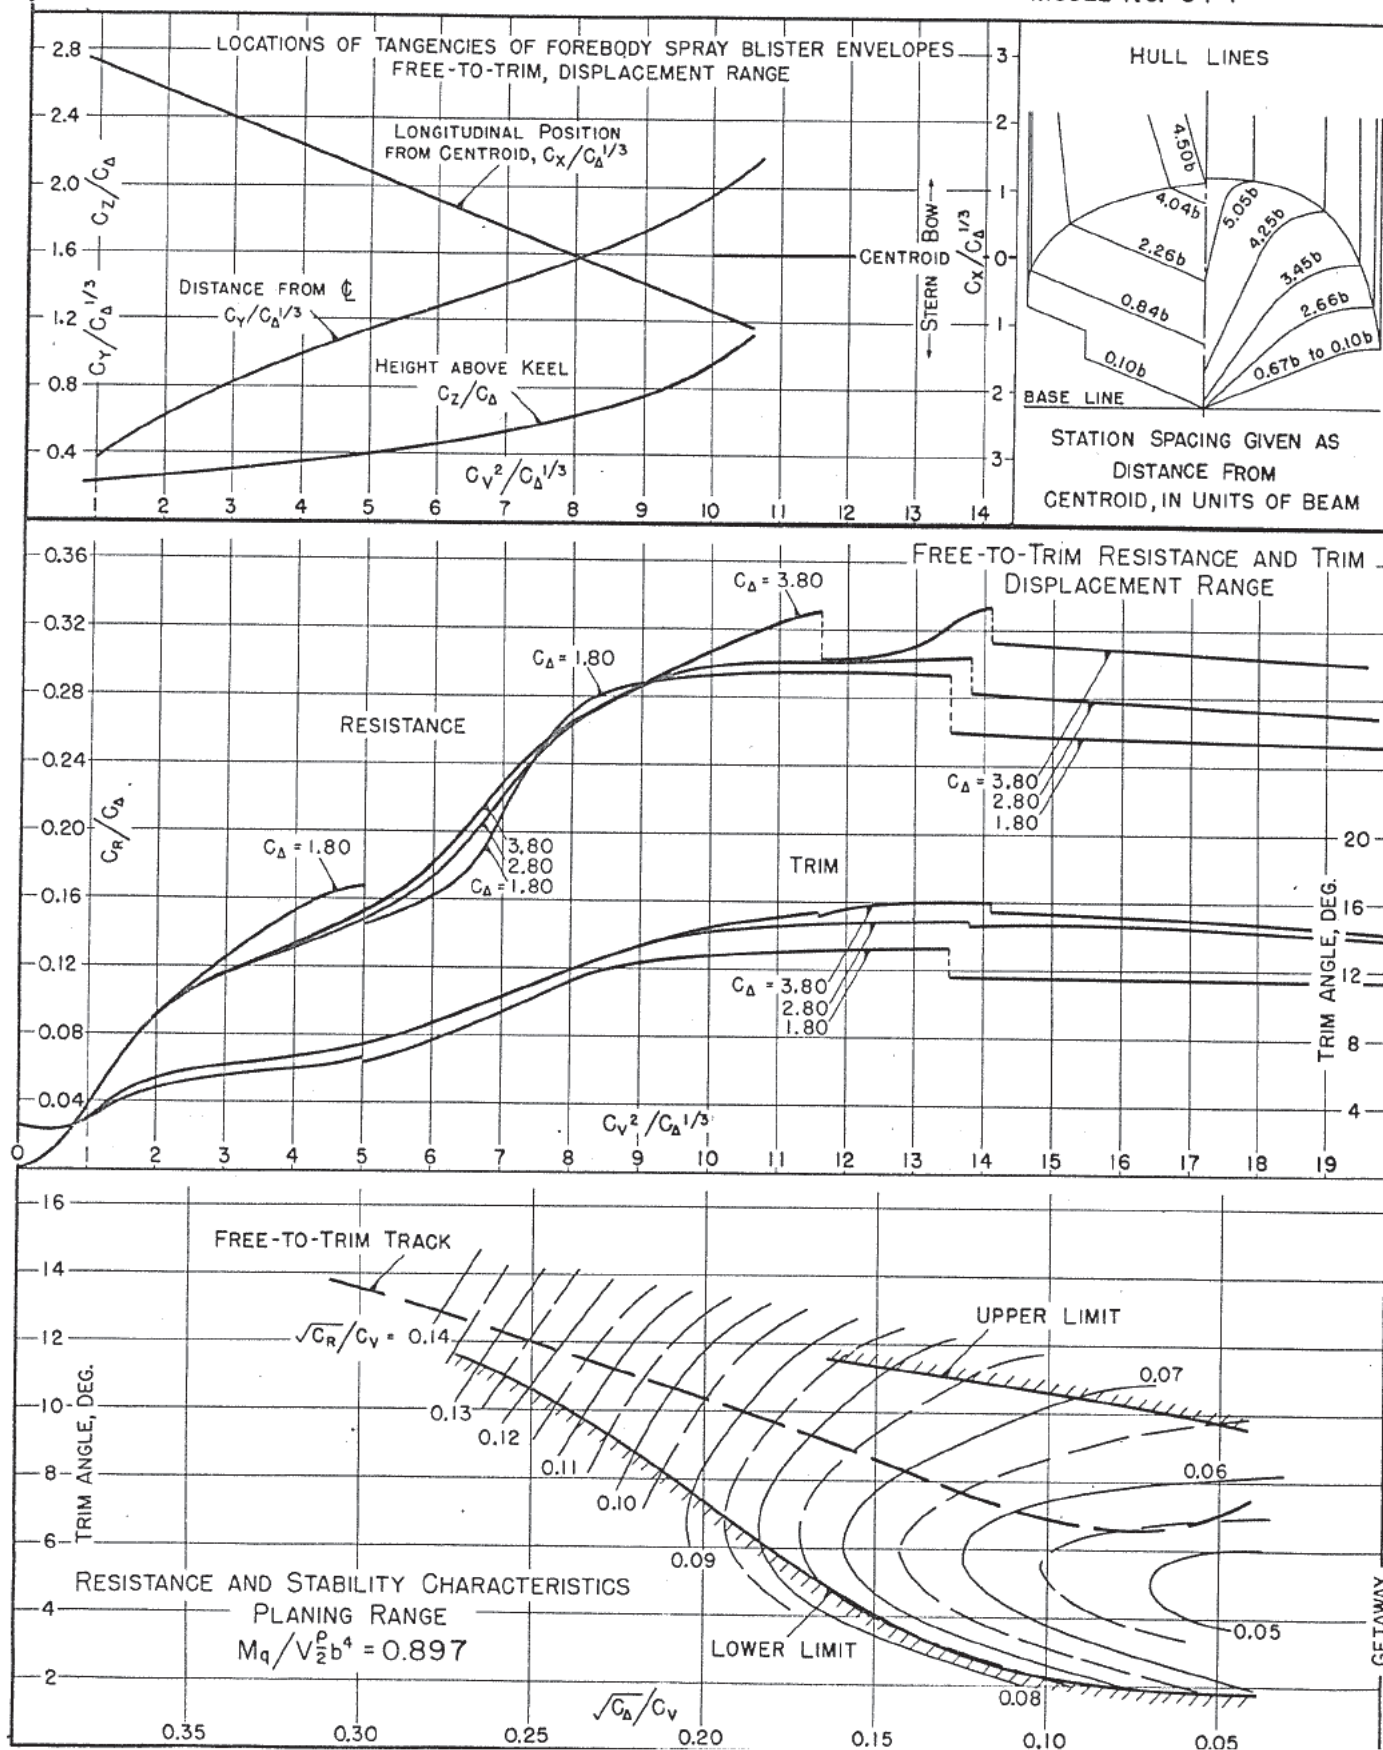 LOCATIONS OF TANGENCIES OF FOREBODY SPRAY BLISTER ENVELOPES
FREE-TO-TRIM, DISPLACEMENT RANGE
2.8
2.4
2.0
1.6
1.2
0.8
0.4
C_Z/C_Δ
C_Y/C_Δ^1/3
LONGITUDINAL POSITION
FROM CENTROID, C_X/C_Δ^1/3
DISTANCE FROM ℄
C_Y/C_Δ^1/3
HEIGHT ABOVE KEEL
C_Z/C_Δ
C_V²/C_Δ^1/3
1 2 3 4 5 6 7 8 9 10 11 12 13 14
3
2
1
0
1
2
3
CENTROID
← STERN BOW →
C_X/C_Δ^1/3
HULL LINES
4.50b
4.04b
2.26b
0.84b
0.10b
5.05b
4.25b
3.45b
2.66b
0.67b to 0.10b
BASE LINE
STATION SPACING GIVEN AS
DISTANCE FROM
CENTROID, IN UNITS OF BEAM
FREE-TO-TRIM RESISTANCE AND TRIM
DISPLACEMENT RANGE
0.36
0.32
0.28
0.24
0.20
0.16
0.12
0.08
0.04
C_R/C_Δ
C_Δ = 3.80
C_Δ = 1.80
RESISTANCE
C_Δ = 1.80
3.80
2.80
C_Δ = 1.80
C_Δ = 3.80
2.80
1.80
TRIM
C_Δ = 3.80
2.80
1.80
20
16
12
8
4
TRIM ANGLE, DEG.
C_V²/C_Δ^1/3
0 1 2 3 4 5 6 7 8 9 10 11 12 13 14 15 16 17 18 19
16
14
12
10
8
6
4
2
TRIM ANGLE, DEG.
FREE-TO-TRIM TRACK
√C_R/C_V = 0.14
0.13
0.12
0.11
0.10
0.09
0.08
0.07
0.06
0.05
UPPER LIMIT
LOWER LIMIT
RESISTANCE AND STABILITY CHARACTERISTICS
PLANING RANGE
M_q/V ρ/2 b⁴ = 0.897
√C_Δ/C_V
0.35 0.30 0.25 0.20 0.15 0.10 0.05
GETAWAY